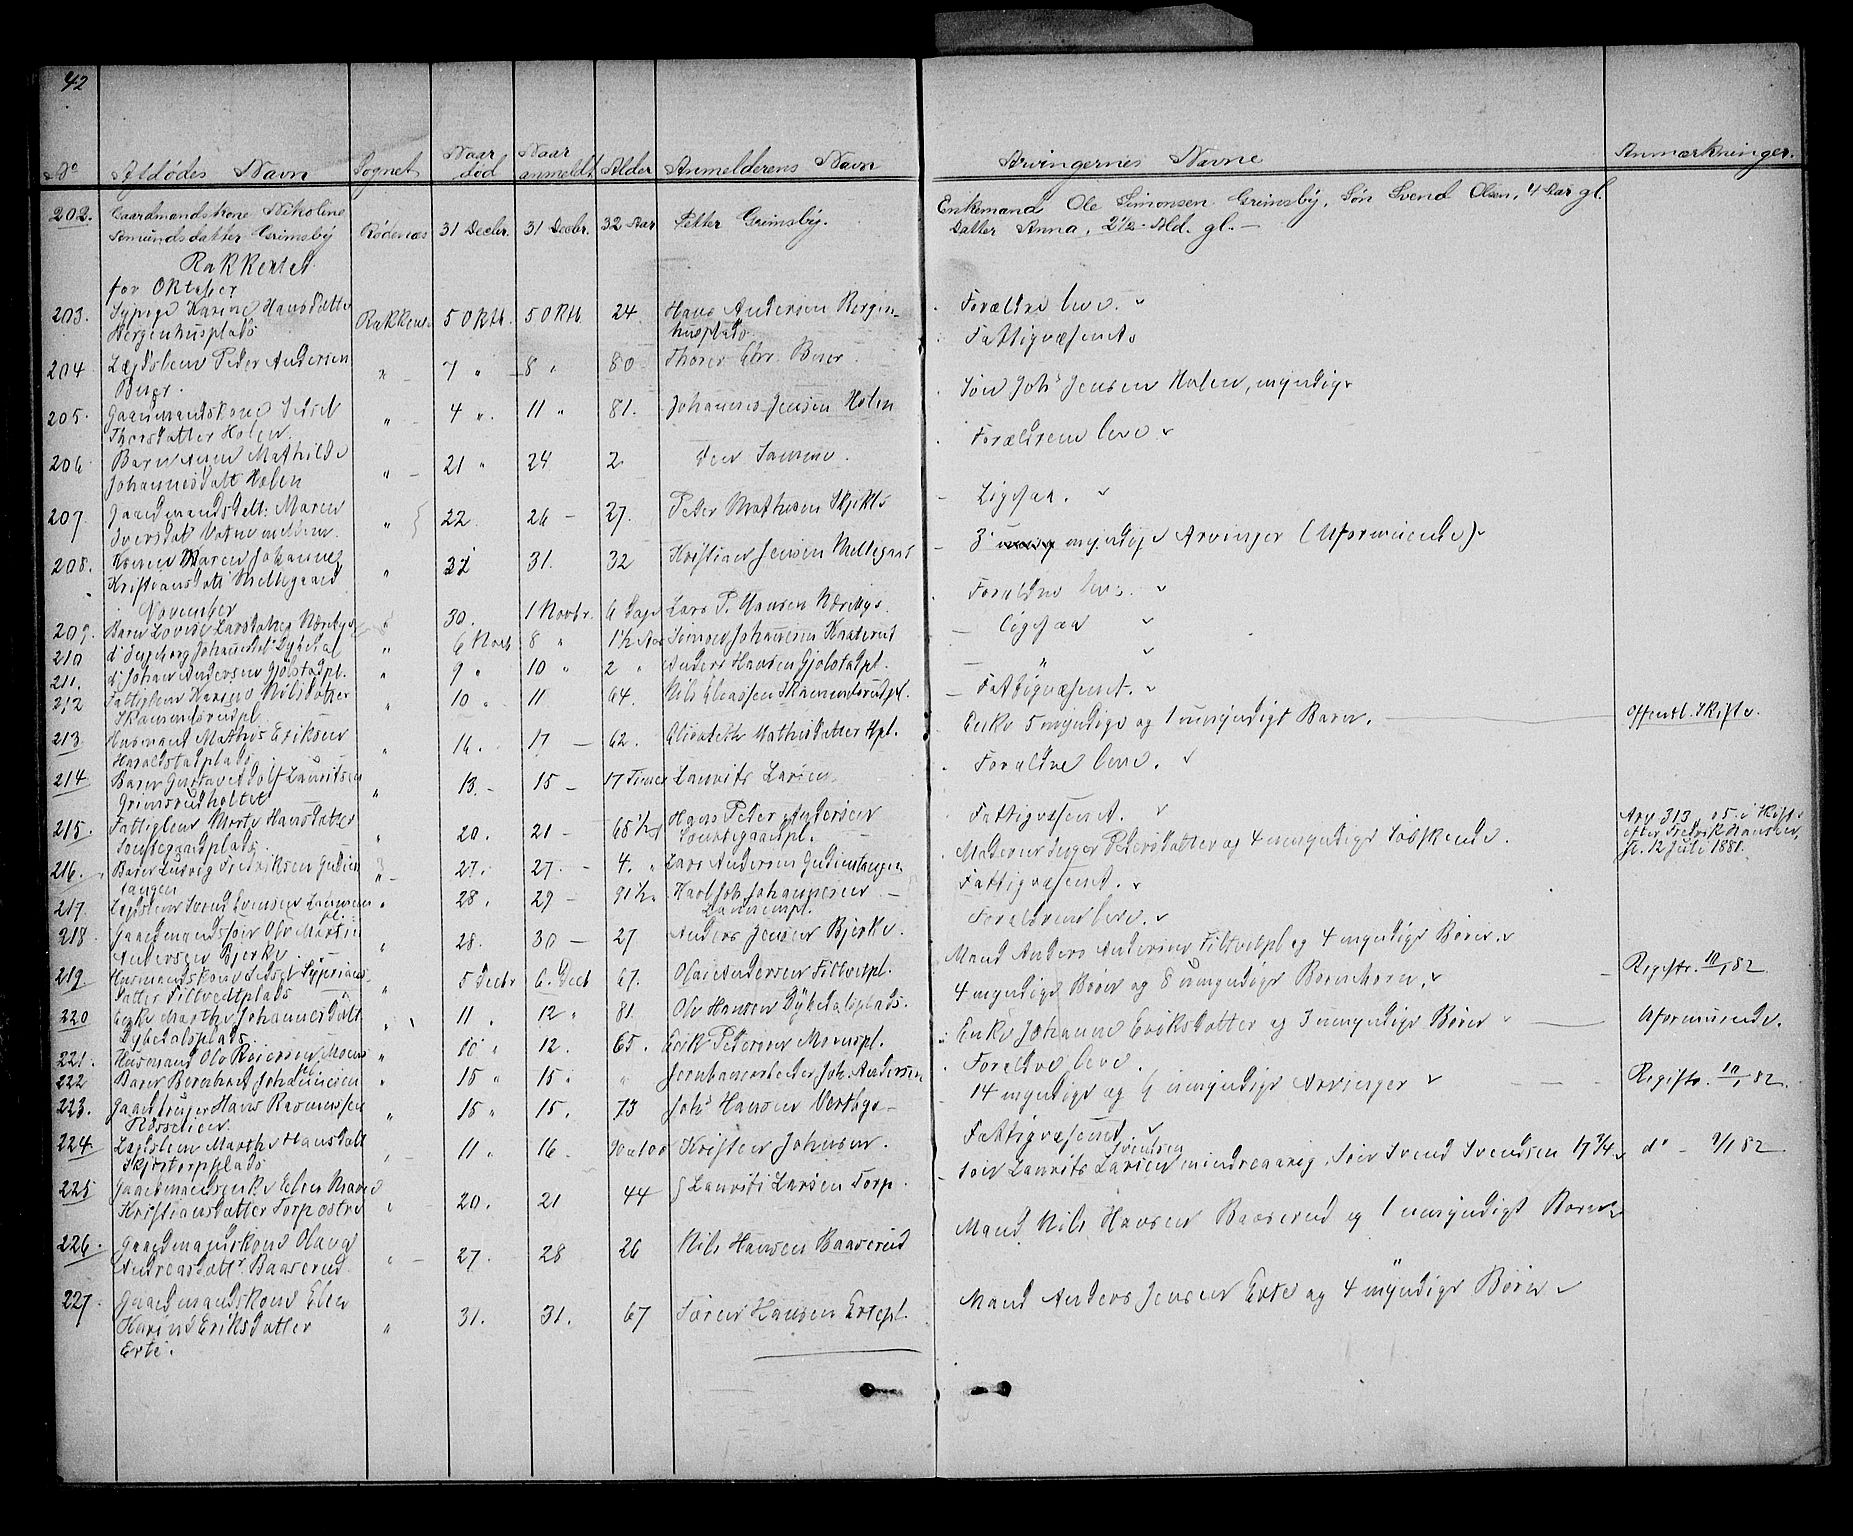 42
No Afdødes Navn Sognet Naar død Naar anmeldt Alder Anmelderens Navn Arvingernes Navne Anmærkninger.
202. Gaardmandskone Nikoline Enkemand Ole Simonsen Grimsby, Søn Svend Olsen, 4 Aar gl.
Amundsdatter Grimsby Rødenæs 31 Decbr. 31 Decbr. 32 Aar Petter Grimsby. Datter Anna, 2 1/2 Md. gl. —
Rakkestad
for Oktober
203. Karine Hansdatter Rakkest. 5 Oktb. 5 Oktb. 24 Hans Andersen Bergen- Forældre leve.
Bergenhusplads husplads
204 Lægdslem Peder Andersen " 7 " 8 " 80 Thorer Buer. Fattigvæsenet.
Buer.
205. Gaardmandskone Sidsel " 4 " 11 " 81. Johannes Jensen Holen Søn Johs Jensen Holen, myndig
Thorsdatter Holen.
206 Barn Mathilde " 21 " 24 2 den Samme. Forældrene leve
Johannesdatt Holen
207. Gaardmandsdatt: Maren " 22. 26 — 27. Peder Mathisen Ligesaa.
Iversdat
208. Maren Johanne " 31. 32 Kristian Jensen Mellegaard 3 myndige Arvinger (Uformuende)
Kristiansdatt Mellegaard
November
209. Barn Lovise Larsdatter " 30. 1 Novbr. 6 Dage Lars P. Hansen Forældre leve.
210 do Ingeborg Johannesdat Dybedal " 6 Novb 8 " 1 1/2 Aar Simon Johannesen — ligesaa
211. do Johan Andersen Gjølstadpl. " 9 " 10 " 2 " Anders Hansen Gjølstadpl. — "
212 Fattiglem Karine Nilsdatter " 10 " 11 64. Nils Eliassen — Fattigvæsenet.
213. Husmand Mathis Eriksen " 16. 17 — 62. Elisabeth Mathisdatter Hpl. Enke 5 myndige og 1 umyndigt Barn. — Offentl. Skifte.
Haraldstadplads
214 Barn Gustav Adolf Lauritsen " 13. — 15 — 17 Timer Laurits Larsen Forældre leve.
Grimsrudholtet
215. Fattiglem Marte Hansdatter " 20. 21 — 65 1/2 Hans Peter Andersen Fattigvæsenet.
216. Barn Ludvig Fredriksen " 27. 27. — 4. " Lars Andersen Moderen Inger Pedersdatter og 4 umyndige Søskende. Arv 313 05 i Skift
efter Fredrik Hansen
fl. 12 Juli 1881.
217. Lægdslem Svend Svensen " 28 " 29 — 91 1/2 " Karl Joh. Johannesen — Fattigvæsenet.
218. Gaardmandssøn Ole Martin " 28. 30 — 27 Anders Jensen Bjerke. Forældrene leve.
Andersen Bjerke.
219 Husmandskone Sidsel Syprians- " 5 Decbr 6. Decb 67. Olai Andersen Filtvetpl. Mand Anders Andersen Filtvetpl og 4 myndige Børn.
datter Filtvedtplads
220 Enke Marthe Johannesdatt " 11 " 12 " 81. Ole Hansen Dybedalsplads. 4 myndige Børn og 8 umyndige Børnebørn. — Registr. 10/1 82
Dybedalsplads.
221. Husmand Ole " 10 " 12. 65. Erik Pedersen Monspl. Enke Johanne Eriksdatter og 3 umyndige Børn — Uformuende.
222 Barn Bernhard Johannesen " 15 " 15 " " Jernbanearbeider Joh. Andersen Forældre leve.
223. Gaardbruger Hans Rasmussen " 15 " 15. 73 Johs Hansen 14 myndige og 4 umyndige Arvinger — Registr. 10/1 82.
224. Lægdslem Marthe Hansdatt " 11 " 16. 90 a 100 Kristen Johnsen. Fattigvæsenet
Skjøstorpplads
225 Gaardmandsenke Elen Marie " 20. 21 44 Laurits Larsen Torp. Søn Laurits Larsen Svendsen mindreaarig. Søn Svend Svendsen 17 3/4 do — 9/1 82
Kristiansdatter Torp østre
226. Gaardmandskone Olava " 27. 28 26 Nils Hansen Baaserud Mand Nils Hansen Baaserud og 1 umyndigt Barn
Andreasdatt Baaserud
227. Gaardmandskone Elen " 31. 31. 67 Søren Hansen Ertepl. Mand Anders Jensen Erte og 4 myndige Børn
Karine Eriksdatter
Erte.